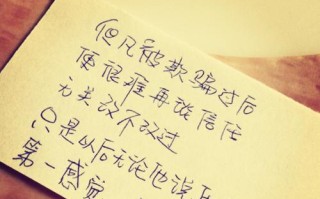 但凡被欺骗过后
便很难再谈信任
无关改不改过
只是以后无论他说
第一感觉